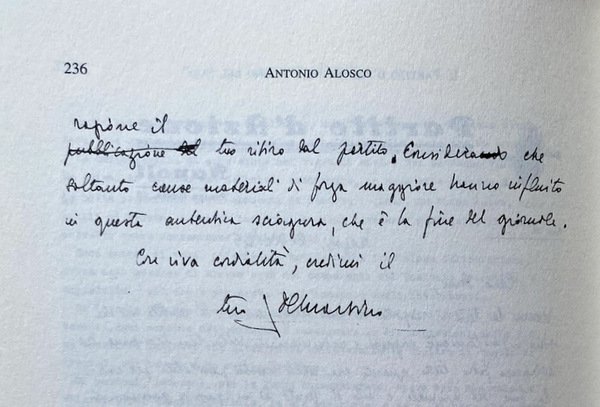 236 ANTONIO ALOSCO
ragione il
pubblicazione del tuo ritiro dal partito. Considerando che
soltanto cause materiali di forza maggiore hanno influito
in questa autentica sciagura, che è la fine del giornale.
Con viva cordialità, credimi il
tuo De Martino